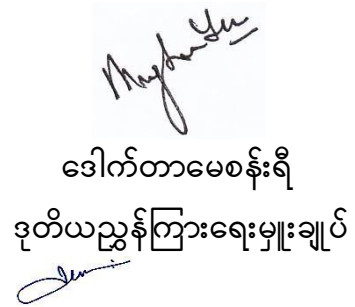 ဒေါက်တာမေစန်းရီ
ဒုတိယညွှန်ကြားရေးမှူးချုပ်